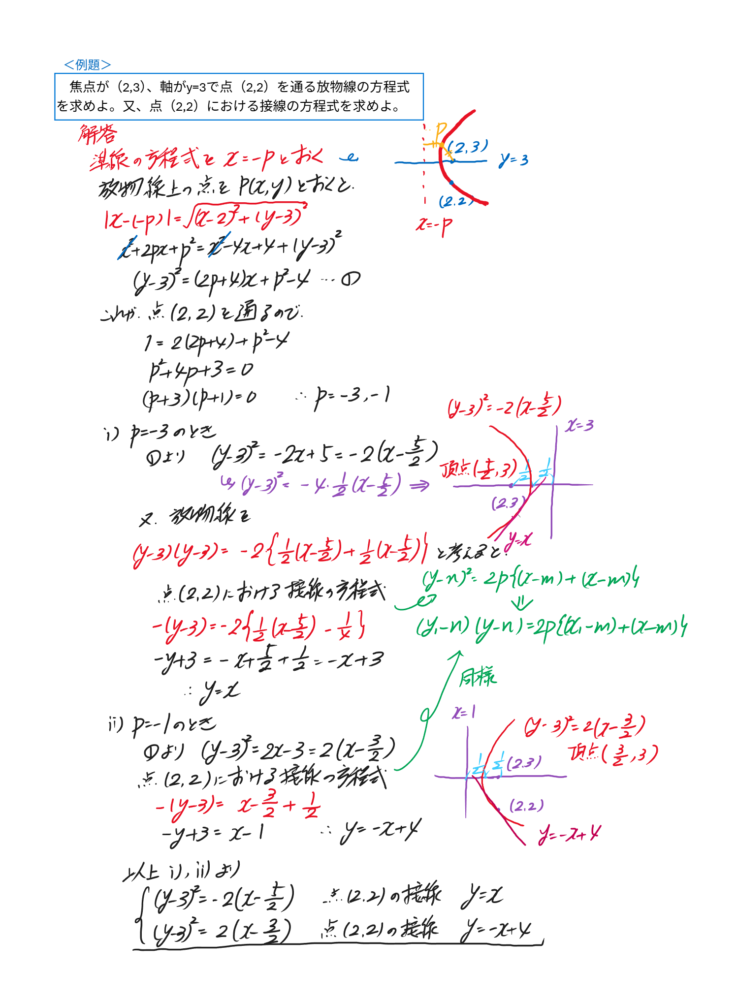 ＜例題＞
焦点が（2,3）、軸がy=3で点（2,2）を通る放物線の方程式
を求めよ。又、点（2,2）における接線の方程式を求めよ。
解答
準線の方程式を x=-pとおく
放物線上の点を P(x,y)とおくと、
|x-(-p)|=√(x-2)²+(y-3)²
x²+2px+p²=x²-4x+4+(y-3)²
(y-3)²=(2p+4)x+p²-4 … ①
これが、点(2,2)を通るので、
1=2(2p+4)+p²-4
p²+4p+3=0
(p+3)(p+1)=0 ∴ p=-3,-1
p
(2,3)
y=3
(2,2)
x=-p
i) p=-3のとき
①より (y-3)²=-2x+5=-2(x-5/2)
↳(y-3)²=-4・1/2(x-5/2) ⇒
(y-3)²=-2(x-5/2)
x=3
頂点(5/2,3)
1/2 1/2
(2,3)
y=x
又、放物線を
(y-3)(y-3)=-2{1/2(x-5/2)+1/2(x-5/2)} と考えると、
点(2,2)における接線の方程式
-(y-3)=-2{1/2(x-5/2)-1/4}
-y+3=-x+5/2+1/2=-x+3
∴ y=x
(y-n)²=2p{(x-m)+(x-m)}
⇓
(y₁-n)(y-n)=2p{(x₁-m)+(x-m)}
同様
ii) p=-1のとき
①より (y-3)²=2x-3=2(x-3/2)
点(2,2)における接線の方程式
-(y-3)=x-3/2+1/2
-y+3=x-1 ∴ y=-x+4
x=1
(y-3)²=2(x-3/2)
頂点(3/2,3)
1/2 1/2 (2,3)
(2,2)
y=-x+4
以上 i),ii)より
(y-3)²=-2(x-5/2) 点(2,2)の接線 y=x
(y-3)²=2(x-3/2) 点(2,2)の接線 y=-x+4